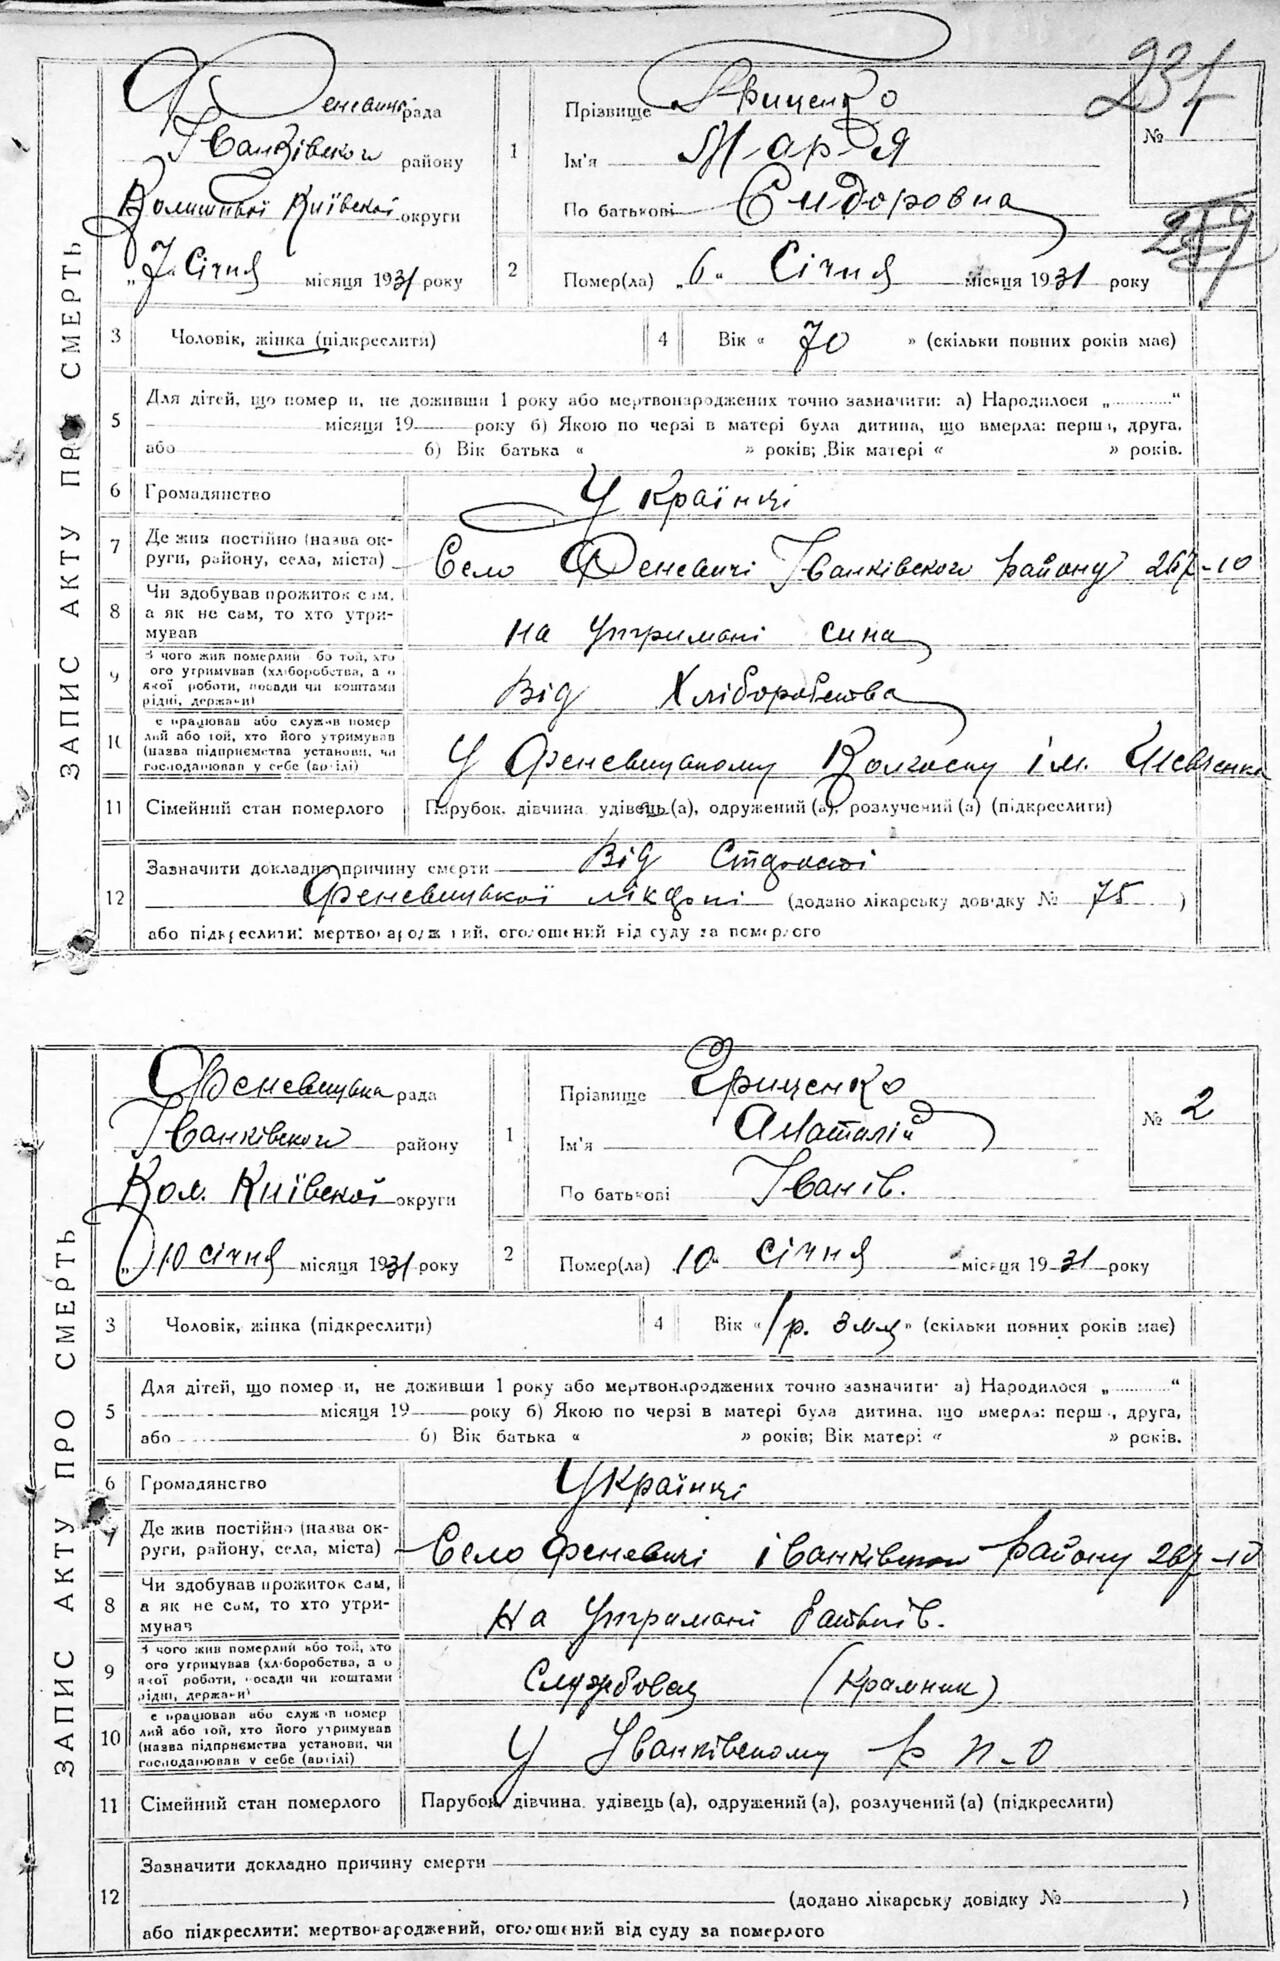 ЗАПИС АКТУ ПРО СМЕРТЬ
рада
Іванківского району
Колишньої Київскої округи
„7" Січня місяця 1931 року
1
Прізвище Гриценко
Ім'я Марія
По батькові Сидоровна
231
№ 1
2
Помер(ла) „6" Січня місяця 1931 року
3 Чоловік, жінка (підкреслити)
4 Вік « 70 » (скільки повних років має)
5 Для дітей, що померли, не доживши 1 року або мертвонароджених точно зазначити: а) Народилося „ "
місяця 19 року б) Якою по черзі в матері була дитина, що вмерла: перша, друга,
або б) Вік батька « » років; Вік матері « » років.
6 Громадянство Українці
7 Де жив постійно (назва ок-
руги, району, села, міста) Село Феневичі Іванківского району 267-10
8 Чи здобував прожиток сам,
а як не сам, то хто утри-
мував на утримані сина
9 З чого жив померлий або той, хто
його утримував (хліборобства, а о
якої роботи, посади чи коштами
рідні, держави) Від Хліборобства
10 е працював або служив помер
лий або той, хто його утримував
(назва підприємства установи, чи
господарював у себе (артілі) У Феневицькому Колгоспу ім. Шевченка
11 Сімейний стан померлого Парубок, дівчина, удівець(а), одружений(а), розлучений(а) (підкреслити)
12 Зазначити докладно причину смерти Від Старості
Феневицької лікарні (додано лікарську довідку № 75 )
або підкреслити: мертвонароджений, оголошений від суду за померлого
ЗАПИС АКТУ ПРО СМЕРТЬ
Феневицька рада
Іванківского району
Кол. Київскої округи
„10 січня місяця 1931 року
1
Прізвище Гриценко
Ім'я Анаталій
По батькові Іванів.
№ 2
2
Помер(ла) 10" січня місяця 1931 року
3 Чоловік, жінка (підкреслити)
4 Вік « 1 р. 3 м » (скільки повних років має)
5 Для дітей, що померли, не доживши 1 року або мертвонароджених точно зазначити: а) Народилося „ "
місяця 19 року б) Якою по черзі в матері була дитина, що вмерла: перша, друга,
або б) Вік батька « » років; Вік матері « » років.
6 Громадянство Українці
7 Де жив постійно (назва ок-
руги, району, села, міста) Село Феневичі іванківского району 267-10
8 Чи здобував прожиток сам,
а як не сам, то хто утри-
мував на утримані батьків.
9 З чого жив померлий або той, хто
його утримував (хліборобства, а о
якої роботи, посади чи коштами
рідні, держави) Службовец (Крамник)
10 е працював або служив помер
лий або той, хто його утримував
(назва підприємства установи, чи
господарював у себе (артілі) У Іванківському
11 Сімейний стан померлого Парубок, дівчина, удівець(а), одружений(а), розлучений(а) (підкреслити)
12 Зазначити докладно причину смерти
(додано лікарську довідку № )
або підкреслити: мертвонароджений, оголошений від суду за померлого